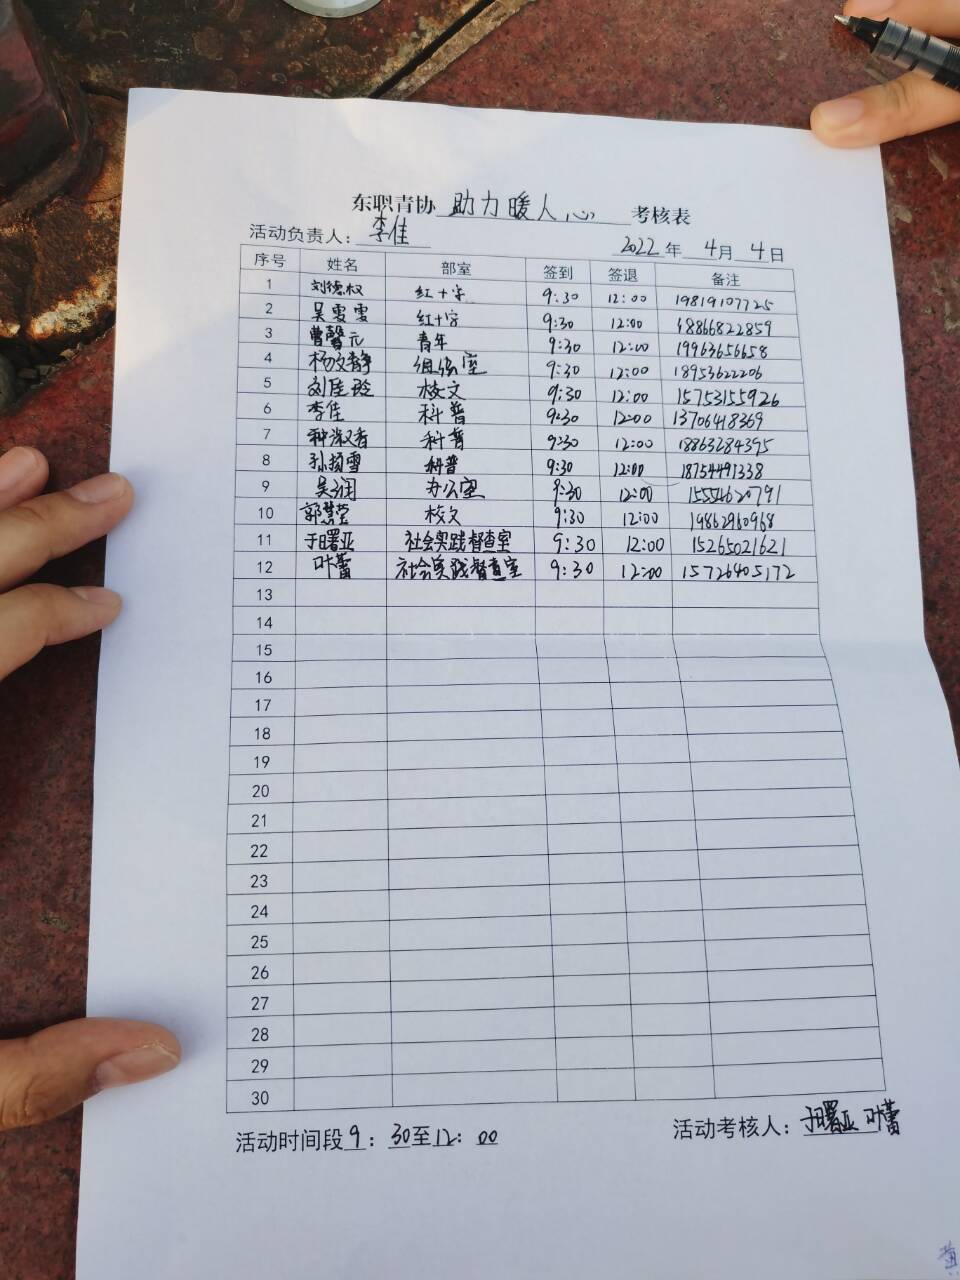 东职青协 助力暖人心 考核表
活动负责人: 李佳 2022 年 4 月 4 日
序号 姓名 部室 签到 签退 备注
1 刘德权 红十字 9:30 12:00 19819107725
2 吴雯雯 红十字 9:30 12:00 18866822859
3 曹馨元 青年 9:30 12:00 19963656658
4 杨文静 组织室 9:30 12:00 18953622206
5 刘佳玲 校文 9:30 12:00 15753155926
6 李佳 科普 9:30 12:00 13706418369
7 种淑香 科普 9:30 12:00 18863284395
8 孙 雪 科普 9:30 12:00 18754491338
9 吴润 办公室 9:30 12:00 15554620791
10 郭慧莹 校文 9:30 12:00 19862960968
11 于曙亚 社会实践督查室 9:30 12:00 15265021621
12 叶蕾 社会实践督查室 9:30 12:00 15726405172
13
14
15
16
17
18
19
20
21
22
23
24
25
26
27
28
29
30
活动时间段 9: 30至12: 00 活动考核人: 于曙亚 叶蕾
黄